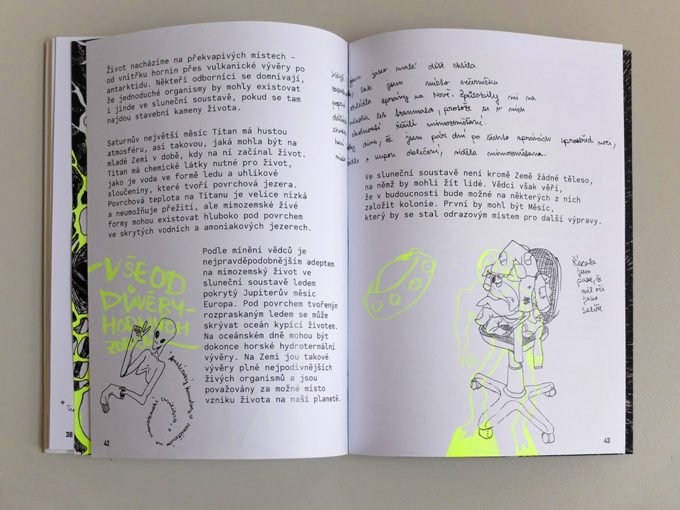 Život nacházíme na překvapivých místech -
od vnitřku hornin přes vulkanické vývěry po
antarktidu. Někteří odborníci se domnívají,
že jednoduché organismy by mohly existovat
i jinde ve sluneční soustavě, pokud se tam
najdou stavební kameny života.
Saturnův největší měsíc Titan má hustou
atmosféru, asi takovou, jaká mohla být na
mladé Zemi v době, kdy na ní začínal život.
Titan má chemické látky nutné pro život,
jako je voda ve formě ledu a uhlíkové
sloučeniny, které tvoří povrchová jezera.
Povrchová teplota na Titanu je velice nízká
a neumožňuje přežití, ale mimozemské živé
formy mohou existovat hluboko pod povrchem
ve skrytých vodních a amoniakových jezerech.
Podle mínění vědců je
nejpravděpodobnějším adeptem
na mimozemský život ve
sluneční soustavě ledem
pokrytý Jupiterův měsíc
Europa. Pod povrchem tvořeným
rozpraskaným ledem se může
skrývat oceán kypící životem.
Na oceánském dně mohou být
dokonce horské hydrotermální
vývěry. Na Zemi jou takové
vývěry plné nejpodivnějších
živých organismů a jsou
považovány za možné místo
vzniku života na naší planetě.
VŠE OD
DŮVĚRY-
HODNÝCH
38
42
Když jsem jako malé dítě chtěla
tak jsem místo večerníčku
zprávy na Nově. Způsobily mi na
trauma, protože se v nich
řešili mimozemšťani.
divu, že jsem pár dní po těchto zprávách uprostřed noci,
s kupou oblečení, viděla mimozemšťana.
Ve sluneční soustavě není kromě Země žádné těleso,
na němž by mohli žít lidé. Vědci však věří,
že v budoucnosti bude možné na některých z nich
založit kolonie. První by mohl být Měsíc,
který by se stal odrazovým místem pro další výpravy.
jsem
měl oči
jako
43